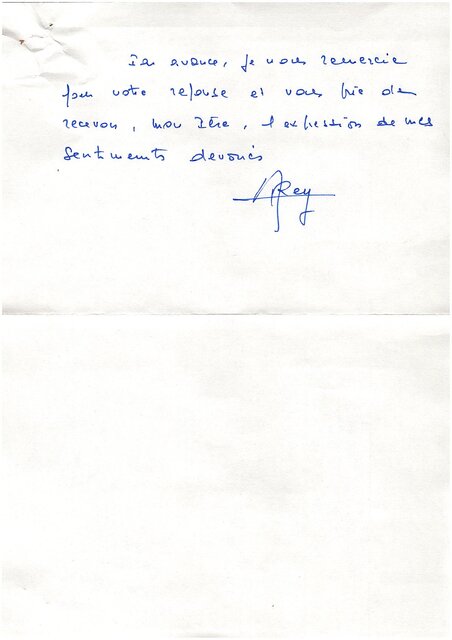 D'avance, je vous remercie
pour votre réponse et vous prie de
recevoir, mon Père, l'expression de mes
sentiments dévoués
Rey